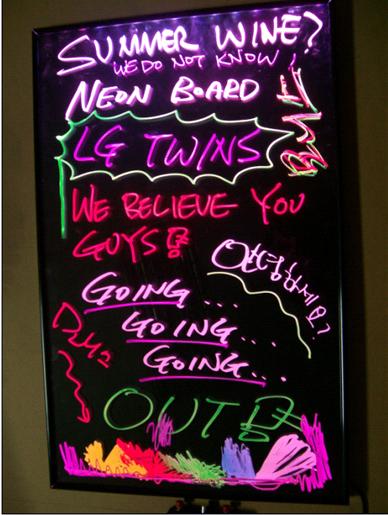 SUMMER WINE?
WE DO NOT KNOW!
NEON BOARD
LG TWINS
WE BELIEVE YOU
GUYS!
안녕하세요?
GOING...
GOING...
GOING...
OUT!